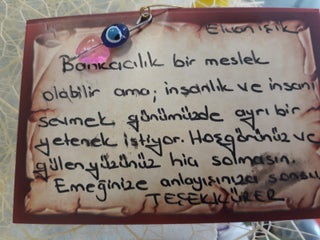 Elvan Işık
Bankacılık bir meslek
olabilir ama; insanlık ve insanı
sevmek günümüzde ayrı bir
yetenek istiyor. Hoşgörünüz ve
gülen yüzünüz hiç solmasın.
Emeğinize anlayışınıza sonsuz
TEŞEKKÜRLER